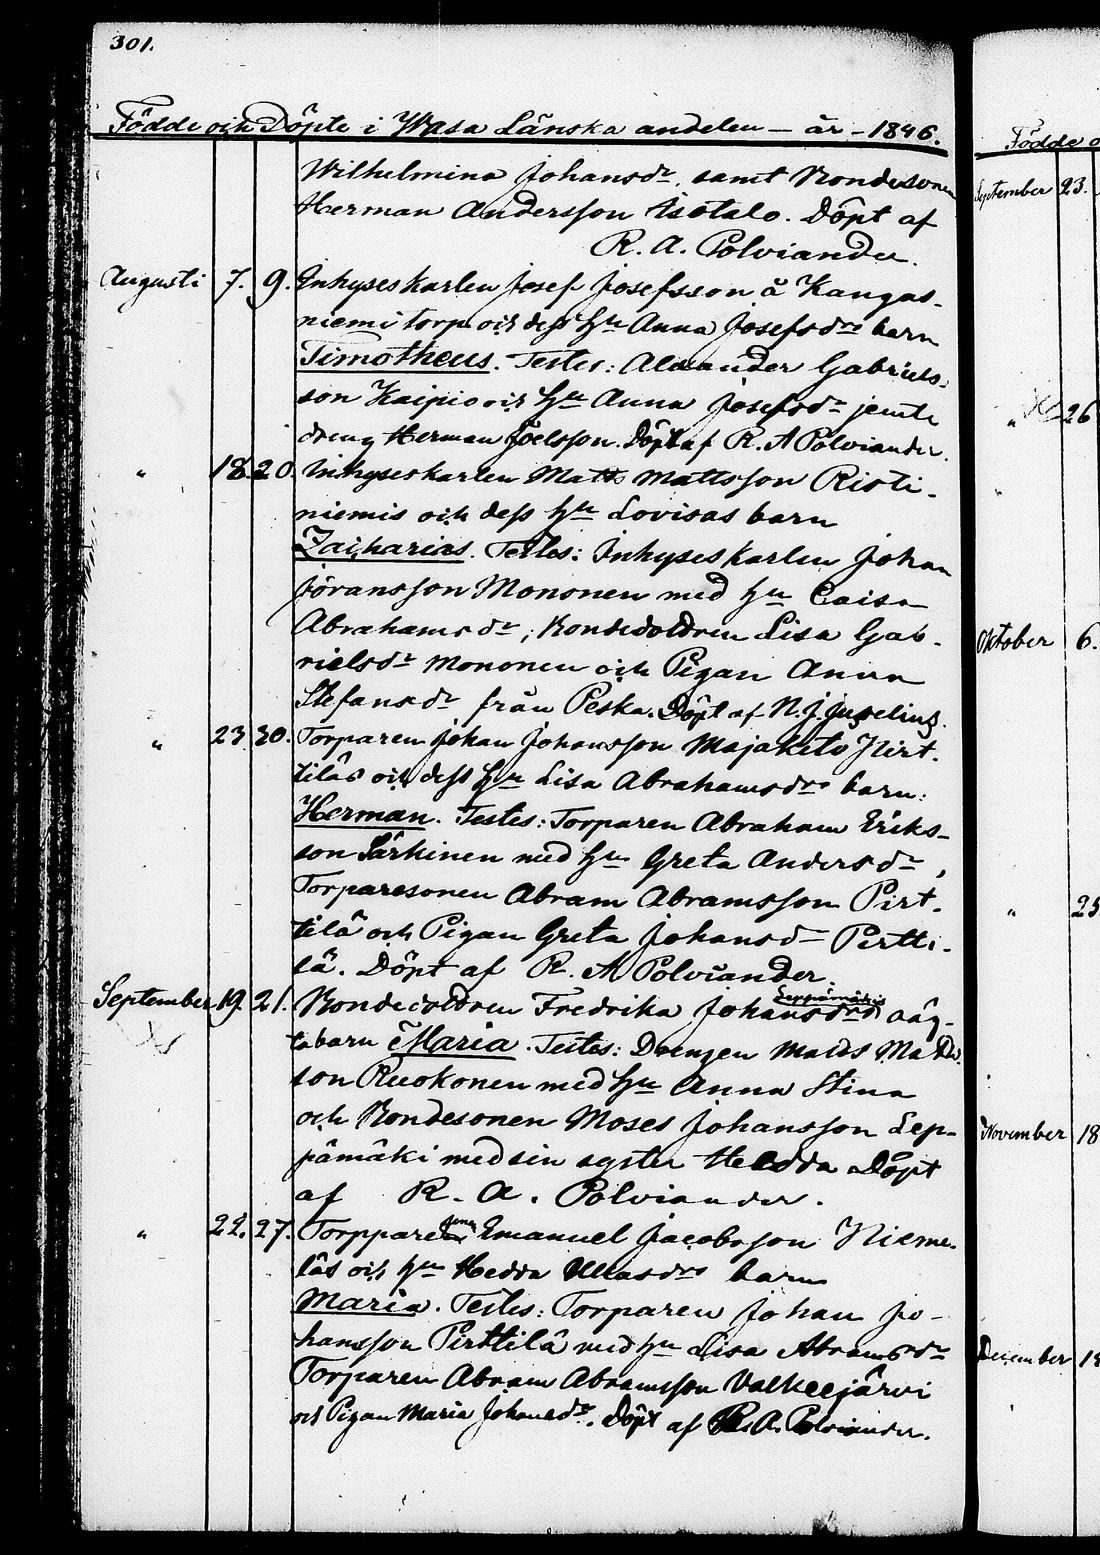 301.
Födde och Döpte i Wasa Länska andelen – år – 1846.
Wilhelmina Johansdr. samt Bondesonen
Herman Andersson Isotalo. Döpt af
R. A. Polviander.
Augusti 7. 9. Inhyseskarlen Josef Josefsson å Kangas-
niemi torp och dess hu Anna Josefsdrs barn
Timotheus. Testes: Alexander Gabriels-
son Kaipio och hu Anna Josefsdr jemte
dreng Herman Joelsson. Döpt af R. A Polviander.
" 18. 20. Inhyseskarlen Matts Mattsson Risti-
niemis och dess hu Lovisas barn
Zacharias. Testes: Inhyseskarlen Johan
Jöransson Mononen med hu Caisa
Abrahamsdr, Bondedottren Lisa Gab-
rielsdr Mononen och Pigan Anna
Stefansdr från Peska. Döpt af N. J. Juselius.
" 23 30. Torparen Johan Johansson Majaketo Pirt-
tiläs och dess hu Lisa Abrahamsdrs barn:
Herman. Testes: Torparen Abraham Eriks-
son Särkinen med hu Greta Andersdr,
Torparesonen Abram Abramsson Pirt-
tilä och Pigan Greta Johansdr Pertti-
lä. Döpt af R. A Polviander.
September 19. 21. Bondedottren Fredrika Johansdrs Leppämäkis oäg-
ta barn Maria. Testes: Drengen Matts Matts-
son Ruokonen med hu Anna Stina
och Bondesonen Moses Johansson Lep-
pämäki med sin syster Hedda Döpt
af R. A. Polviander.
" 22. 27. Torpparen Emanuel Jacobsson Nieme-
läs och hu Hedda Ullasdrs barn
Maria. Testes: Torparen Johan Jo-
hansson Pirttilä med hu Lisa Abramsdr
Torparen Abram Abramsson Valkeejärvi
och Pigan Maria Johansdr. Döpt af R. A. Polviander.
Födde o
September 23.
" 26
"
Oktober 6.
" 25
November 18
December 18